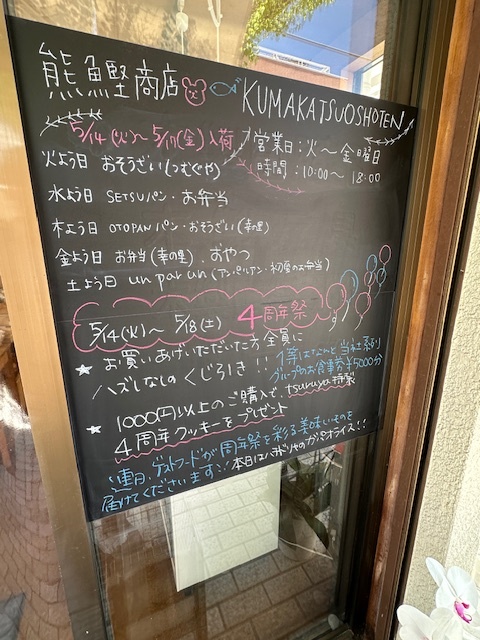 熊鰹商店 KUMAKATSUOSHOTEN
5/14(火)〜5/17(金)入荷
営業日:火〜金曜日
時間:10:00〜18:00
火よう日 おそうざい(つむぐや)
水よう日 SETSUパン・お弁当
木よう日 OTOPANパン・おそうざい(幸の里)
金よう日 お弁当(幸の里)・おやつ
土よう日 un par un(アンパルアン・初夏のお弁当)
5/14(火)〜5/18(土) 4周年祭
★お買いあげいただいた方全員に
ハズレなしのくじろ引き!!
1等はなんと当社系列
グループのお食事券¥5000分
★1000円以上のご購入で、tsuruya特製
4周年クッキーをプレゼント
連日、ゲストフードが周年祭を彩る美味いものを
届けてくださいます!!本日はハチドリヤのガパオライス!!